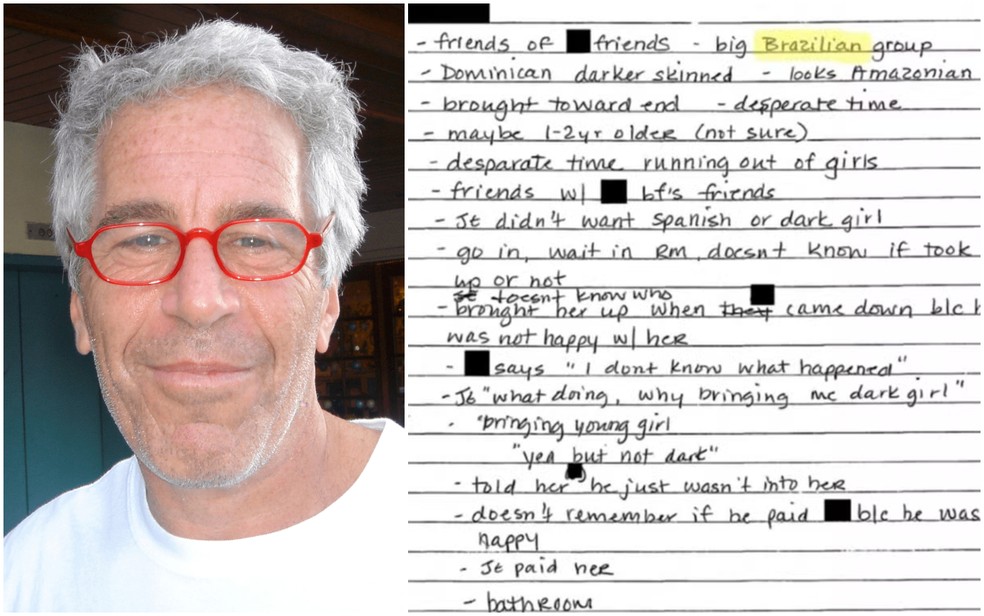 - friends of friends - big Brazilian group
- Dominican darker skinned - looks Amazonian
- brought toward end - desperate time
- maybe 1-2yr older (not sure)
- desparate time running out of girls
- friends w/ bf's friends
- JE didn't want spanish or dark girl
- go in, wait in RM, doesnt know if took
up or not
doesnt know who
- brought her up when they came down b/c h
was not happy w/ her
- says "I dont know what happened"
- JE "what doing, why bringing me dark girl"
- "bringing young girl
"yea but not dark"
- told her he just wasn't into her
- doesn't remember if he paid b/c he was
happy
- JE paid her
- bathroom